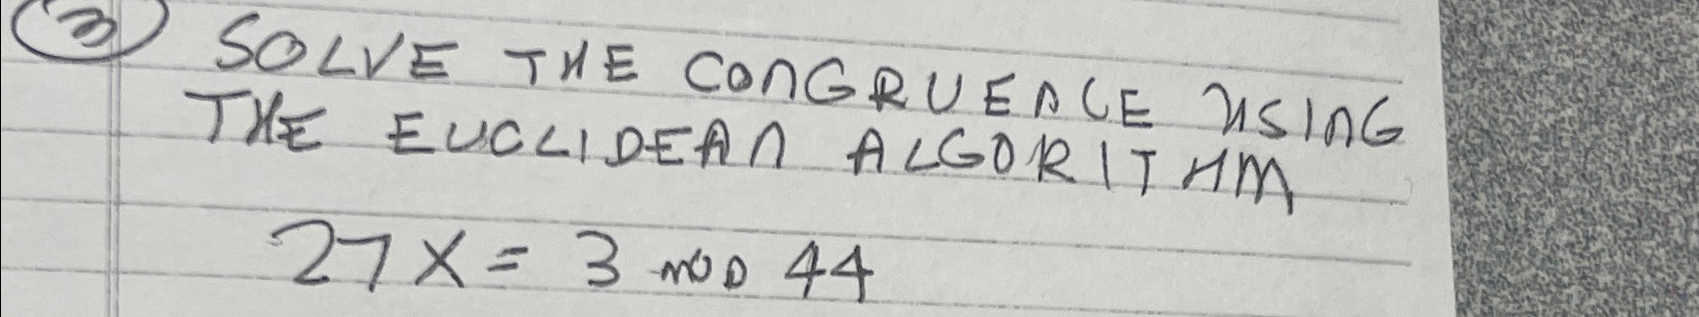 3 SOLVE THE CONGRUENCE USING
THE EUCLIDEAN ALGORITHM
27X = 3 MOD 44